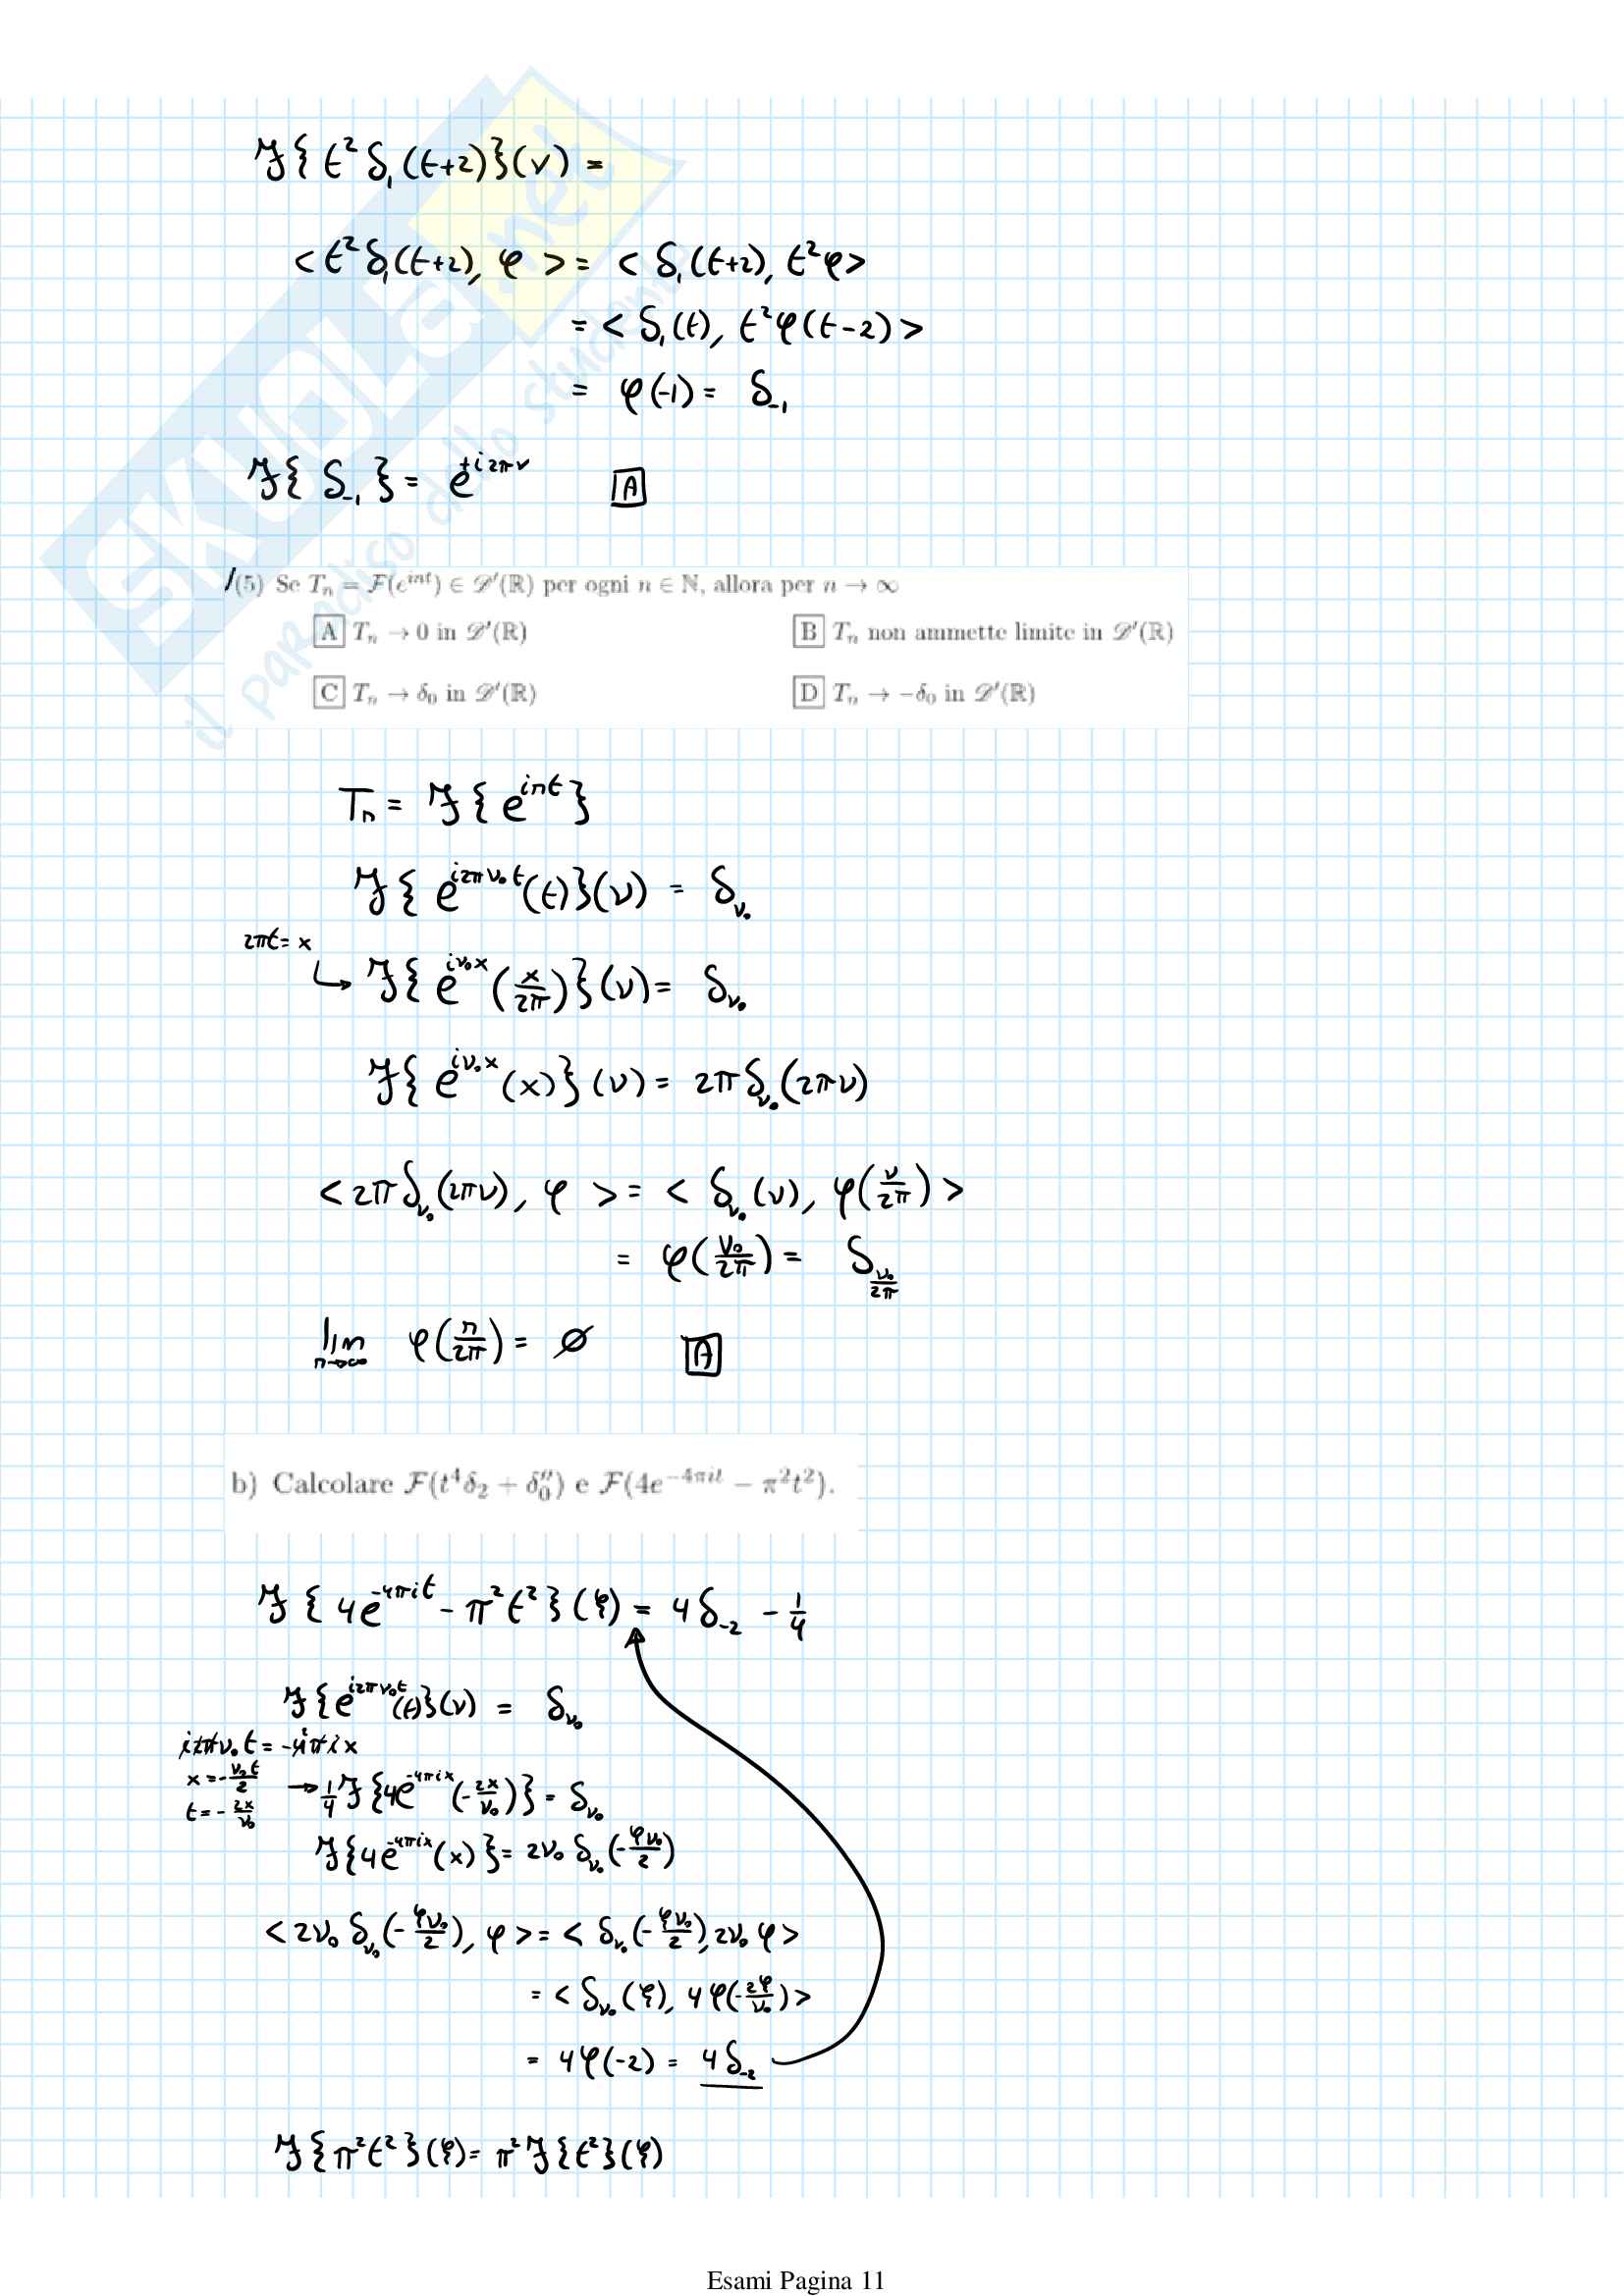 ℱ{ t² δ₁(t+2)}(ν) =
< t² δ₁(t+2), φ > = < δ₁(t+2), t²φ>
= < δ₁(t), t²φ(t-2) >
= φ(-1) = δ₋₁
ℱ{ δ₋₁ } = e^{+i2πν} [A]
/(5) Se Tₙ = ℱ(e^{int}) ∈ 𝒟′(ℝ) per ogni n ∈ ℕ, allora per n → ∞
[A] Tₙ → 0 in 𝒟′(ℝ) [B] Tₙ non ammette limite in 𝒟′(ℝ)
[C] Tₙ → δ₀ in 𝒟′(ℝ) [D] Tₙ → −δ₀ in 𝒟′(ℝ)
Tₙ = ℱ{ e^{int} }
ℱ{ e^{i2πν₀t}(t)}(ν) = δ_{ν₀}
2πt = x
↳ ℱ{ e^{iν₀x}(x/2π)}(ν) = δ_{ν₀}
ℱ{ e^{iν₀x}(x)}(ν) = 2πδ_{ν₀}(2πν)
< 2πδ_{ν₀}(2πν), φ > = < δ_{ν₀}(ν), φ(ν/2π) >
= φ(ν₀/2π) = δ_{ν₀/2π}
lim_{n→∞} φ(n/2π) = ∅ [A]
b) Calcolare ℱ(t⁴δ₂ + δ₀″) e ℱ(4e^{−4πit} − π²t²).
ℱ{ 4e^{-4πit} - π²t² }(ξ) = 4δ₋₂ - 1/4
ℱ{e^{i2πν₀t}(t)}(ν) = δ_{ν₀}
i2πν₀t = -4πix
x = -ν₀t/2
→ 1/4 ℱ{4e^{-4πix}(-2x/ν₀)} = δ_{ν₀}
t = -2x/ν₀
ℱ{4e^{-4πix}(x)} = 2ν₀ δ_{ν₀}(-ξν₀/2)
< 2ν₀ δ_{ν₀}(-ξν₀/2), φ > = < δ_{ν₀}(-ξν₀/2), 2ν₀φ >
= < δ_{ν₀}(ξ), 4φ(-2ξ/ν₀) >
= 4φ(-2) = 4δ₋₂
ℱ{π²t²}(ξ) = π²ℱ{t²}(ξ)
Esami Pagina 11
SKUOLA.net
il paradiso dello studente